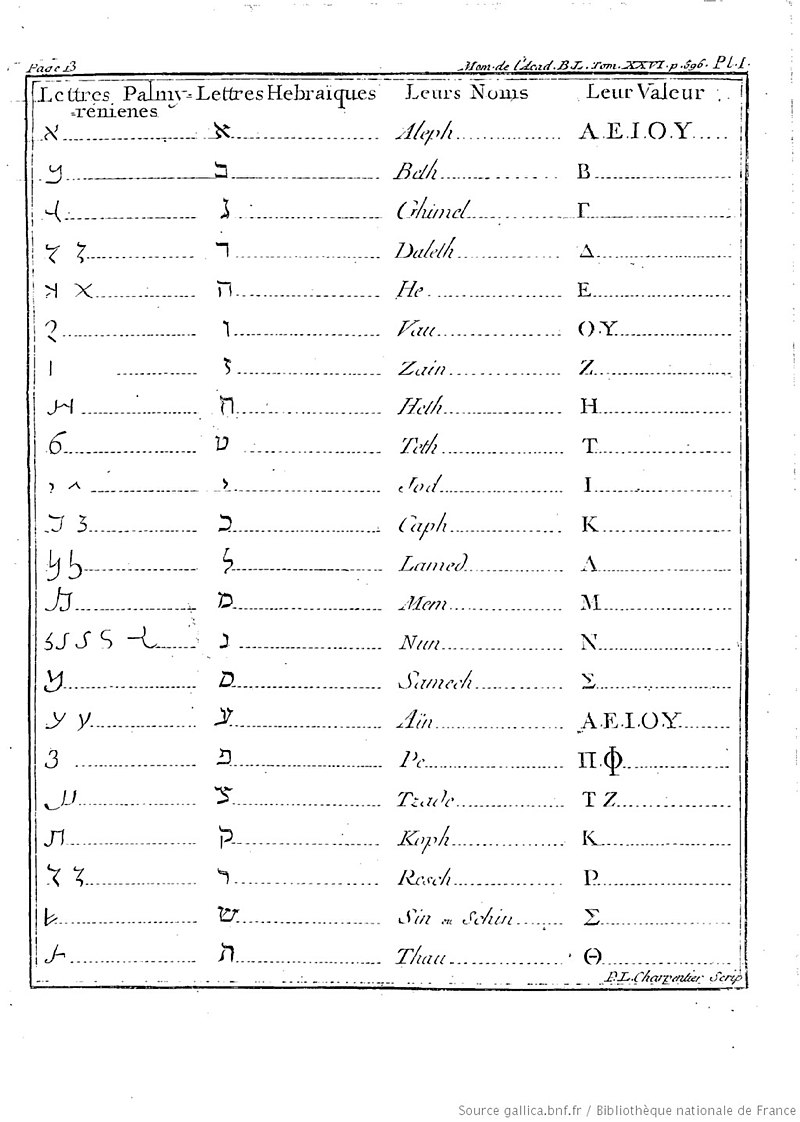 Page 13 Mem. de l'Acad. B.L. Tom. XXVI. p. 596. Pl. I.
Lettres Palmy= Lettres Hebraïques Leurs Noms Leur Valeur
=rénienes
א Aleph A.E.I.O.Y
ב Beth B
ג Ghimel Γ
ד Daleth Δ
ה He E
ו Vau O.Y
ז Zain Z
ח Heth H
ט Teth T
י Jod I
כ Caph K
ל Lamed Λ
מ Mem M
נ Nun N
ס Samech Σ
ע Aïn A.E.I.O.Y
פ Pe Π.Φ
צ Tzade T Z
ק Koph K
ר Resch P
ש Sin ou Schin Σ
ת Thau Θ
P.L. Charpentier Scrip
Source gallica.bnf.fr / Bibliothèque nationale de France